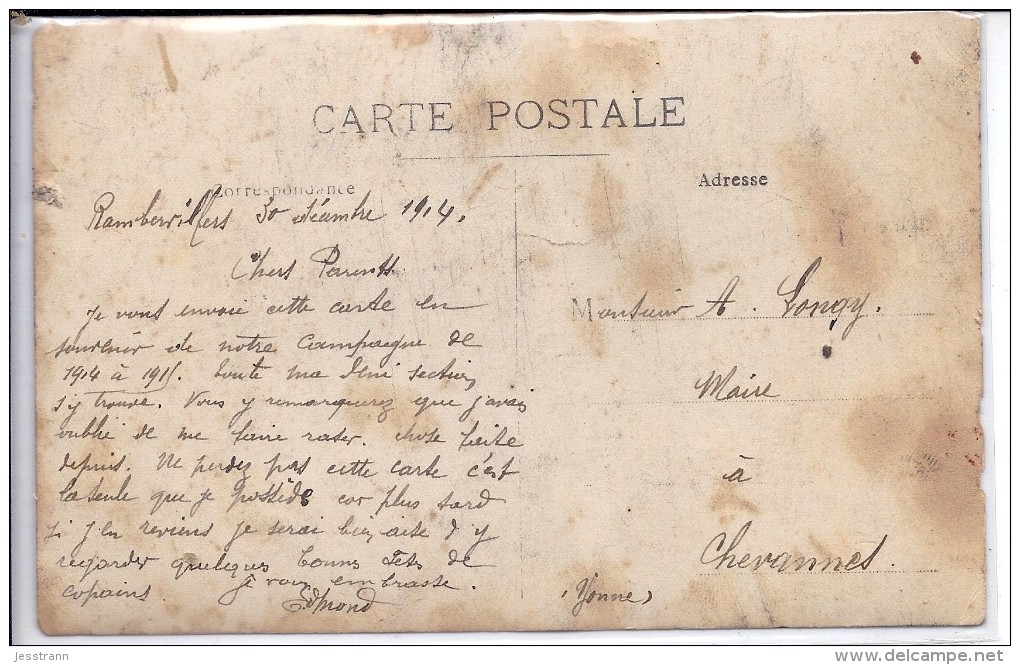 CARTE POSTALE
Correspondance
Rambervillers 30 décembre 1914.
Chers Parents
Je vous envoie cette carte en
souvenir de notre Campagne de
1914 à 1915. Toute ma demi section
s'y trouve. Vous y remarquerez que j'avais
oublié de me faire raser. chose faite
depuis. Ne perdez pas cette carte c'est
la seule que je possède car plus tard
si j'en reviens je serai bien aise d'y
regarder quelques bonnes têtes de
copains. Je vous embrasse.
Edmond
Adresse
Monsieur A. Longy.
Maire
à
Chevannes.
(Yonne)
jesstrann
delcampe.net